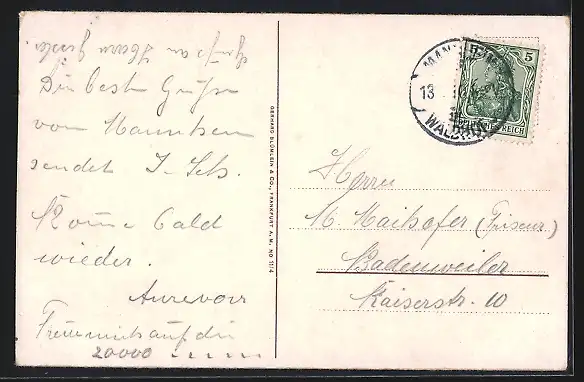 Die besten Grüße
von Mannheim
sendet J. Sch.
Komme bald
wieder.
Aurevoir
Freue mich auf die
20000
GERHARD BLÜMLEIN & CO., FRANKFURT A. M. NO 1174
MANNHEIM
13
WALDHOF
5
REICH
Herrn
M. Maihofer (Friseur)
Badenweiler
Kaiserstr. 10